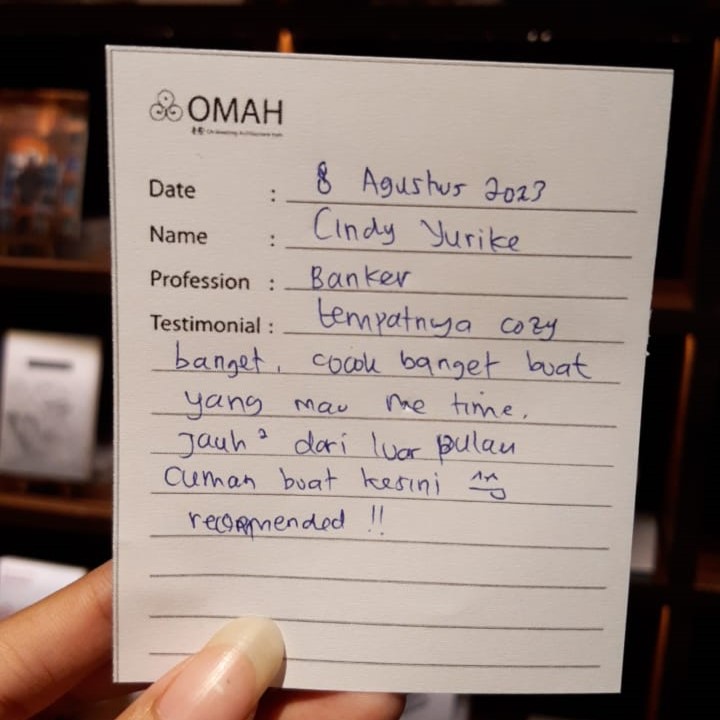 OMAH
Date : 8 Agustus 2023
Name : Cindy Yurike
Profession : Banker
Testimonial : tempatnya cozy
banget, cocok banget buat
yang mau me time.
Jauh² dari luar pulau
cuman buat kesini ^^
recommended !!